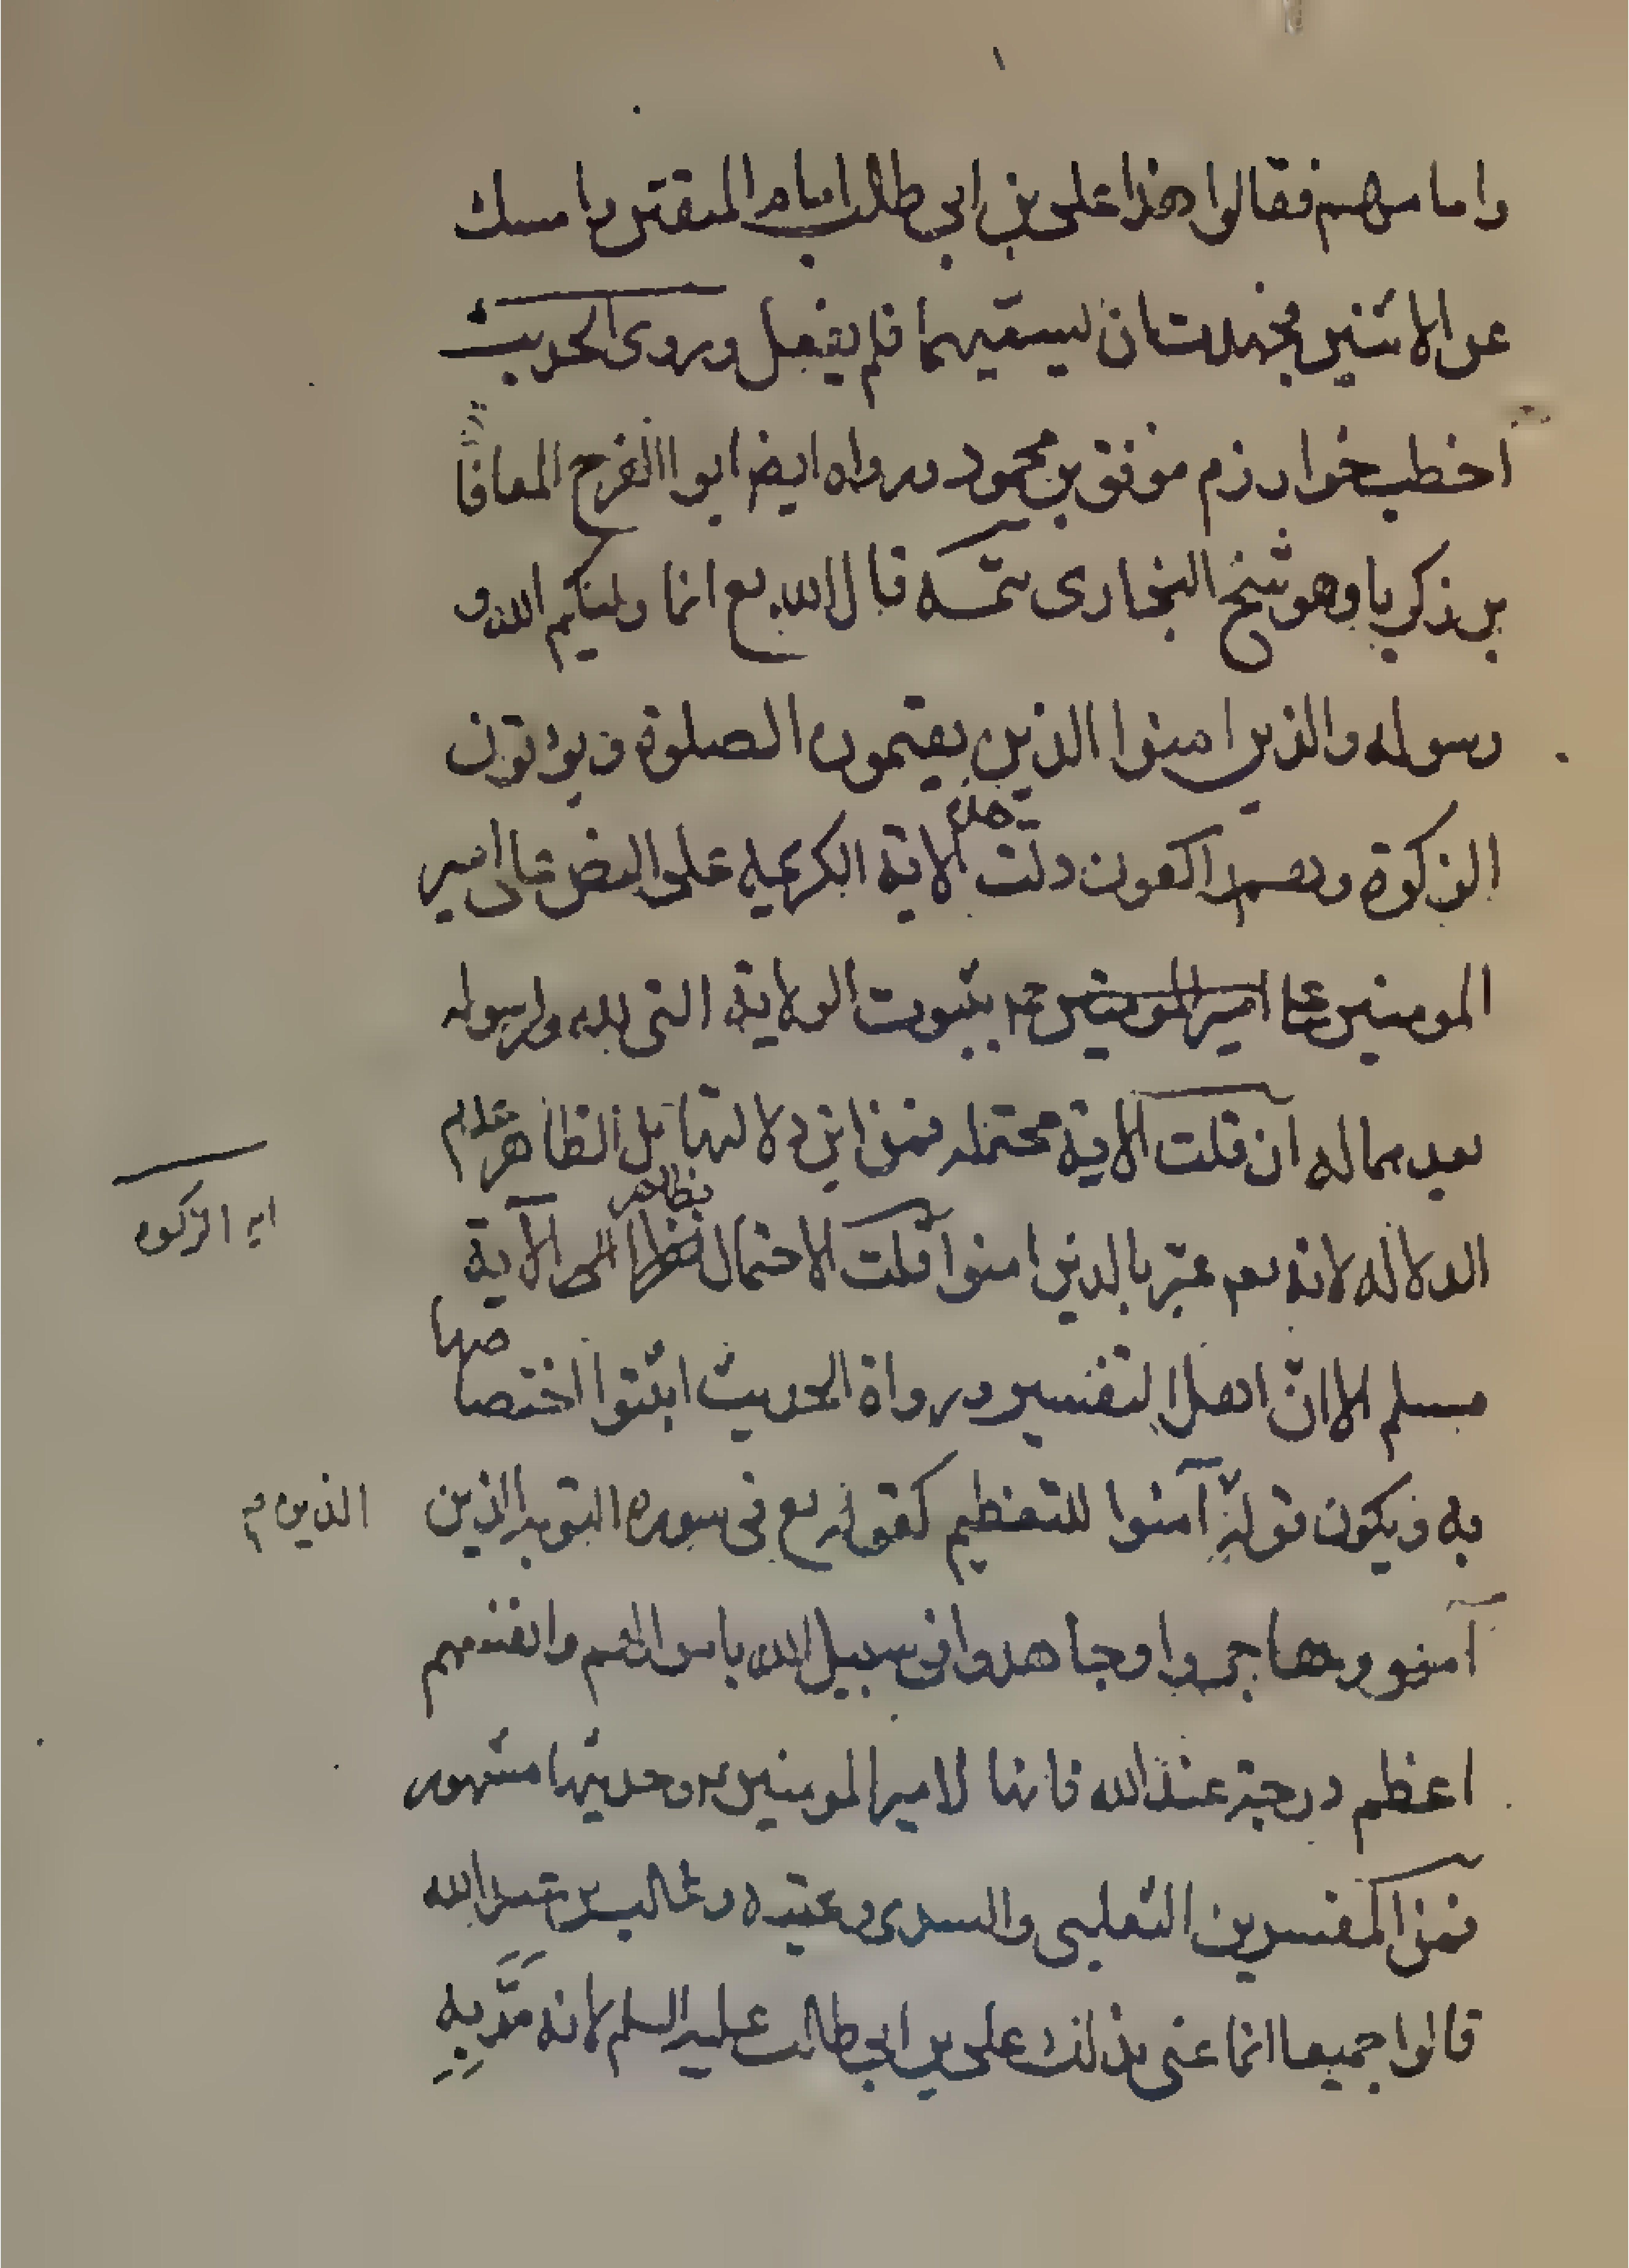 واما منهم فقالوا هذا على بن ابى طالب امام المتقين وامسك
عن الاثنين فجهدت ان يسقيهما فلم يفعل وروى الحديث
اخطب خوارزم موفق بن محمود ورواه ايضا ابوا الفرج المعافا
بن زكريا وهو شيخ البخارى تتمه قال الله تع انما وليكم الله و
رسوله والذين امنوا الذين يقيمون الصلوة ويؤتون
الزكوة وهم راكعون دلت هذه الاية الكريمه على النص على امير
المومنين بثبوت الولاية التى لله ولرسوله
ان قلت الاية محتمله فمن اين دلالتها بل الظاهر عدم
الدلاله لانه تع عبر بالذين امنوا قلت الاحتمال نظرا الى الآية
ايه الزكوه
مسلم الا ان اهل التفسير ورواة الحديث اثبتوا اختصاصها
به ويكون قوله آمنوا للتعظيم كقوله تع فى سورة التوبه الذين
الذين
آمنو وهاجروا وجاهدوا فى سبيل الله باموالهم وانفسهم
اعظم درجة عند الله فانها لامير المومنين وحديثها مشهور
فمن المفسرين الثعلبى والسدى وعتبه وغالب بن عبد الله
قالوا جميعا انما عنى بذلك على بن ابى طالب عليه السلم لانه مر به